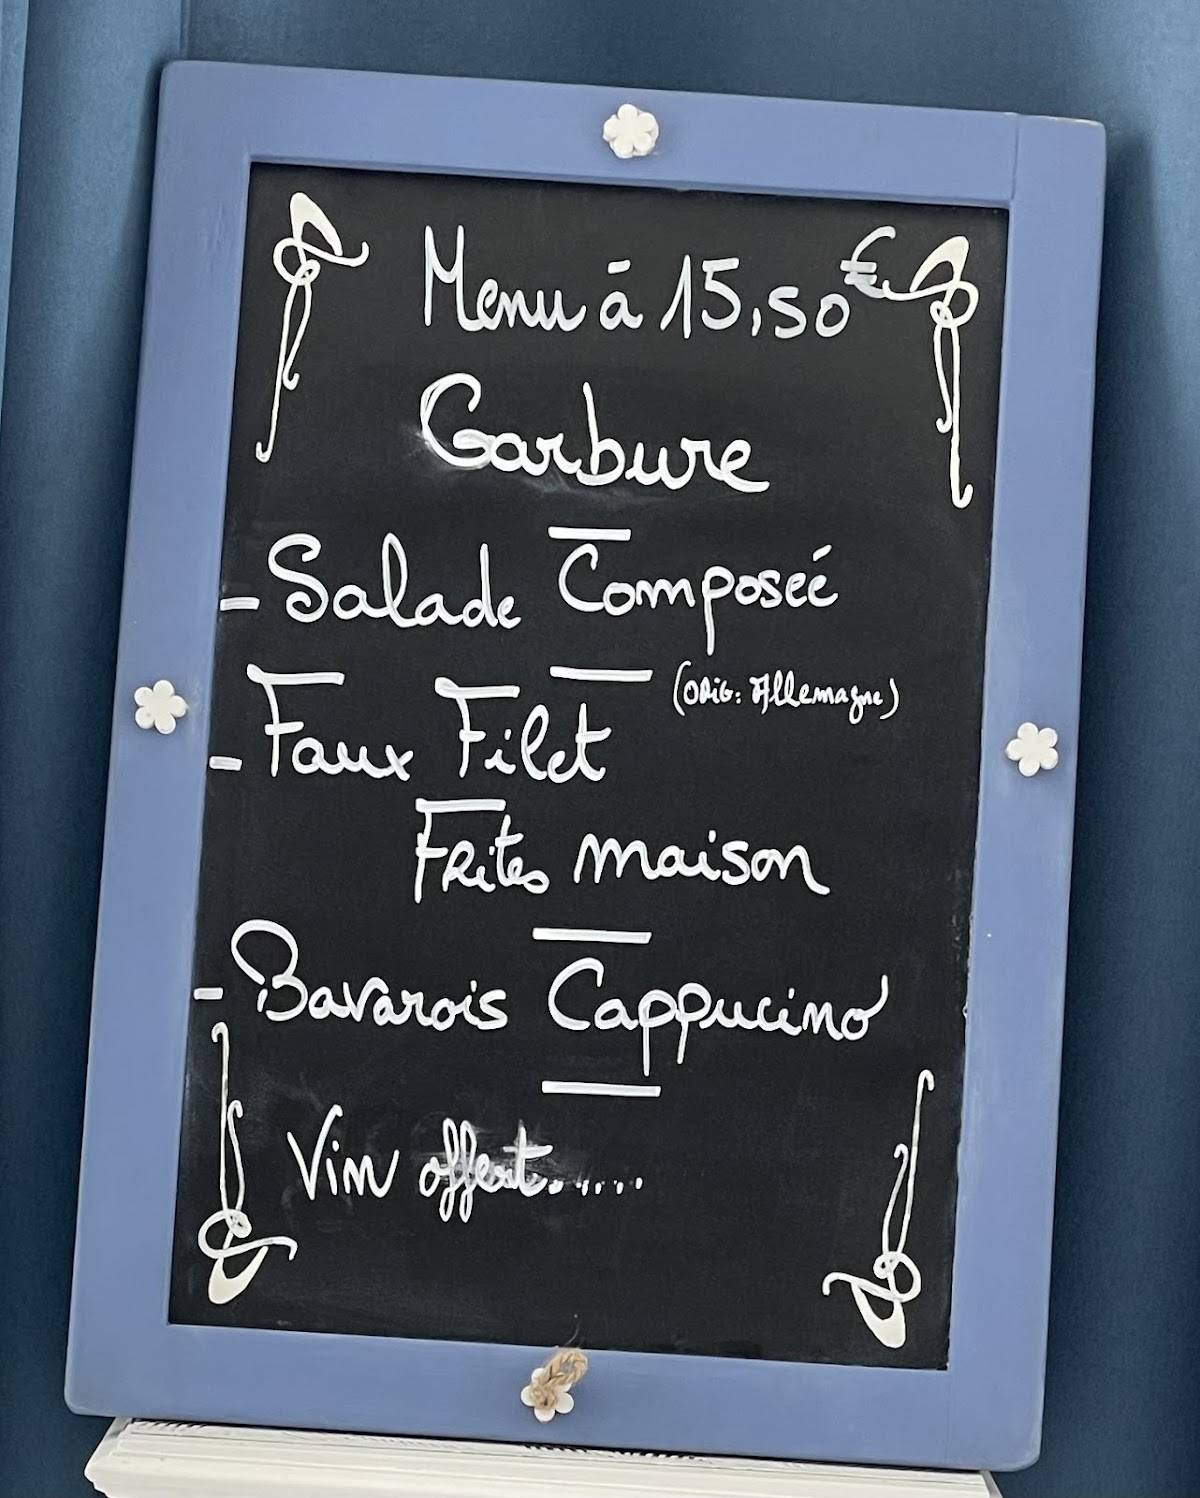 Menu à 15,50€
Garbure
- Salade Composéé
(ORIG: Allemagne)
- Faux Filet
Frites maison
- Bavarois Cappucino
Vin offert......